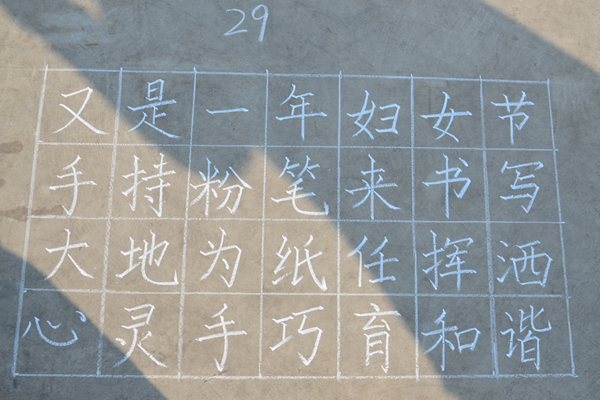 29
又是一年妇女节
手持粉笔来书写
大地为纸任挥洒
心灵手巧育和谐